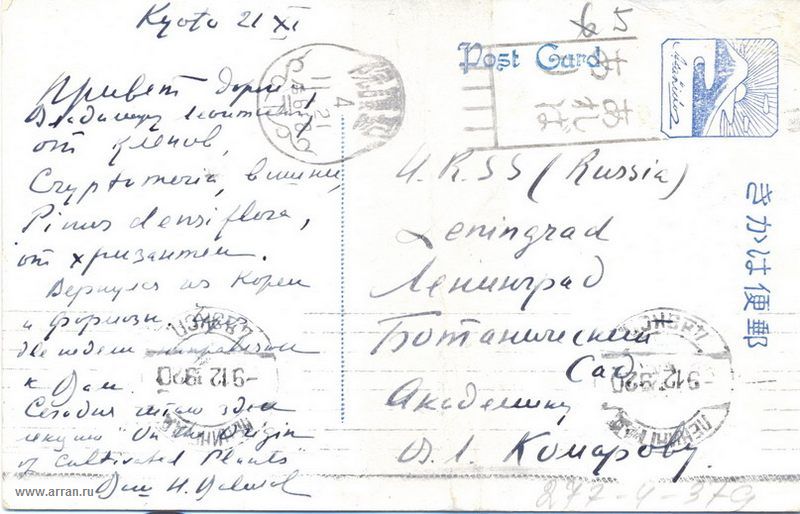 Kyoto 21 XI
Привет дорогому
Владимиру Леонтьевичу
от кленов,
Cryptomeria, вишни,
Pinus densiflora,
от хризантем.
Вернулся из Кореи
и Формозы. Через
две недели направляюсь
к Вам.
Сегодня читаю здесь
лекцию "On the Origin
of Cultivated Plants"
Ваш Н. Вавилов
Post Card
きかは便郵
U.R.SS (Russia)
Leningrad
Ленинград
Ботанический
Сад
Академику
В. Л. Комарову.
-9.12.29
-9.12.29
247-4-379
www.arran.ru